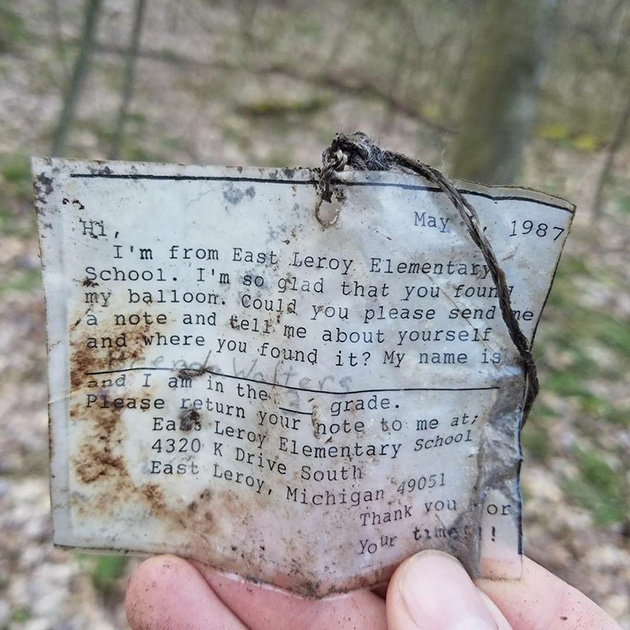 Hi,
May 1987
I'm from East Leroy Elementary
School. I'm so glad that you found
my balloon. Could you please send me
a note and tell me about yourself
and where you found it? My name is
Walters
and I am in the ___ grade.
Please return your note to me at;
East Leroy Elementary School
4320 K Drive South
East Leroy, Michigan 49051
Thank you for
Your time!!